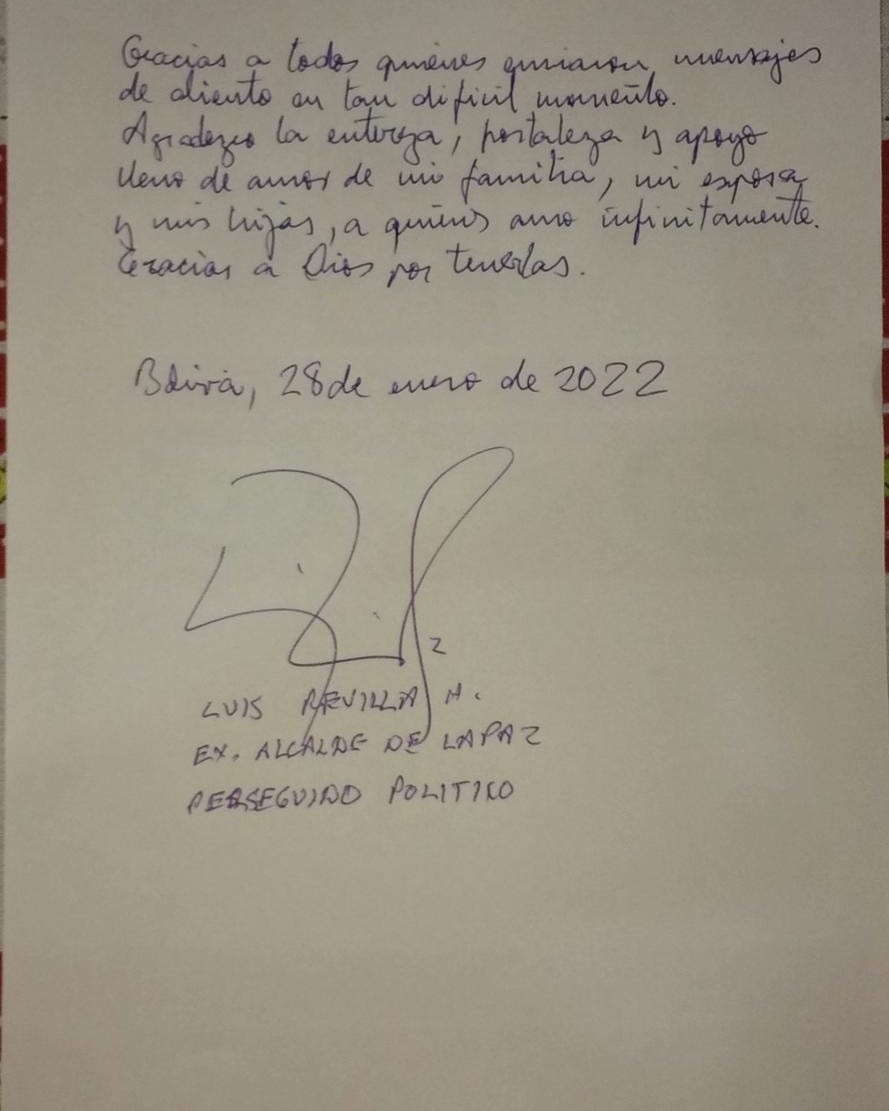 Gracias a todos quiénes enviaron mensajes
de aliento en tan dificil momento.
Agradezco la entereza, fortaleza y apoyo
lleno de amor de mi familia, mi esposa
y mis hijas, a quiénes amo infinitamente.
Gracias a Dios por tenerlas.
Bolivia, 28 de enero de 2022
LUIS REVILLA H.
EX. ALCALDE DE LA PAZ
PERSEGUIDO POLITICO